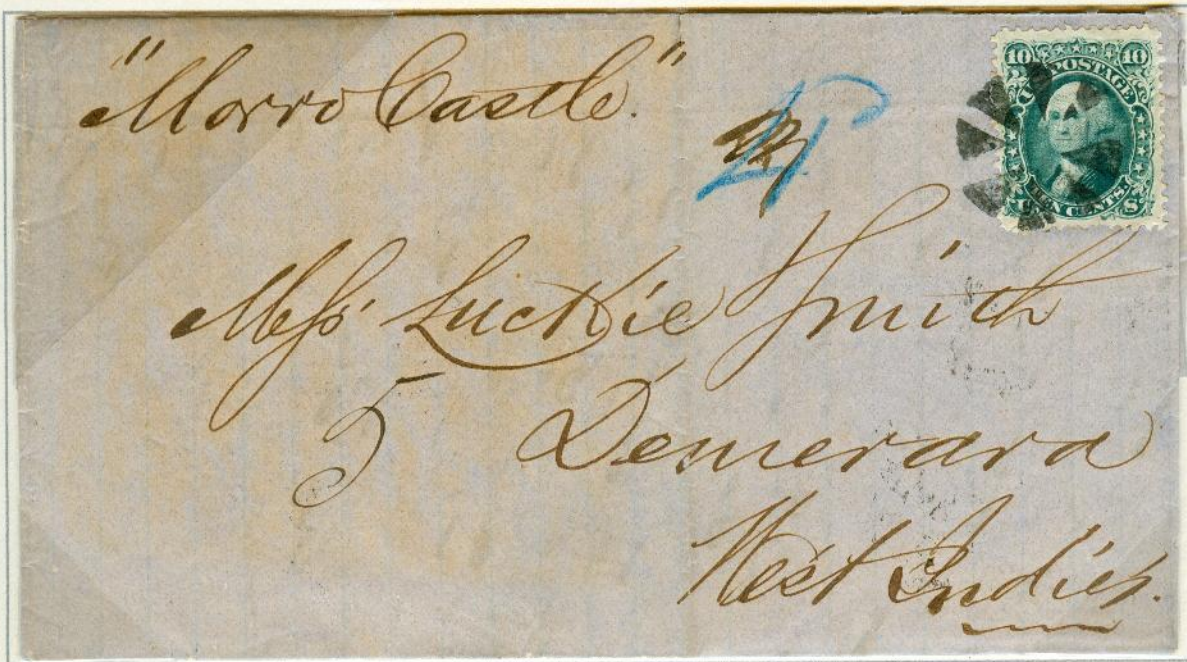 "Morro Castle."
10 10
U.S. POSTAGE
TEN CENTS.
U S
Mess Luckie Smith
5 Demerara
West Indies.